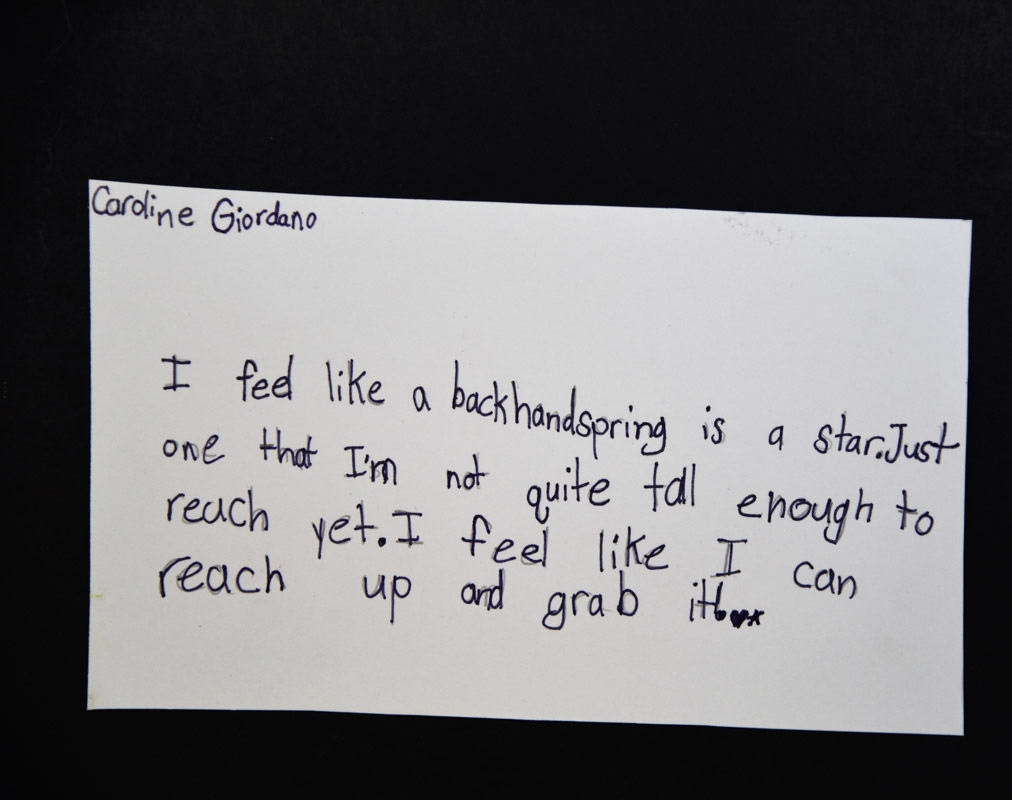 Caroline Giordano
I feel like a backhandspring is a star.Just
one that I'm not quite tall enough to
reach yet.I feel like I can
reach up and grab it!..♥*